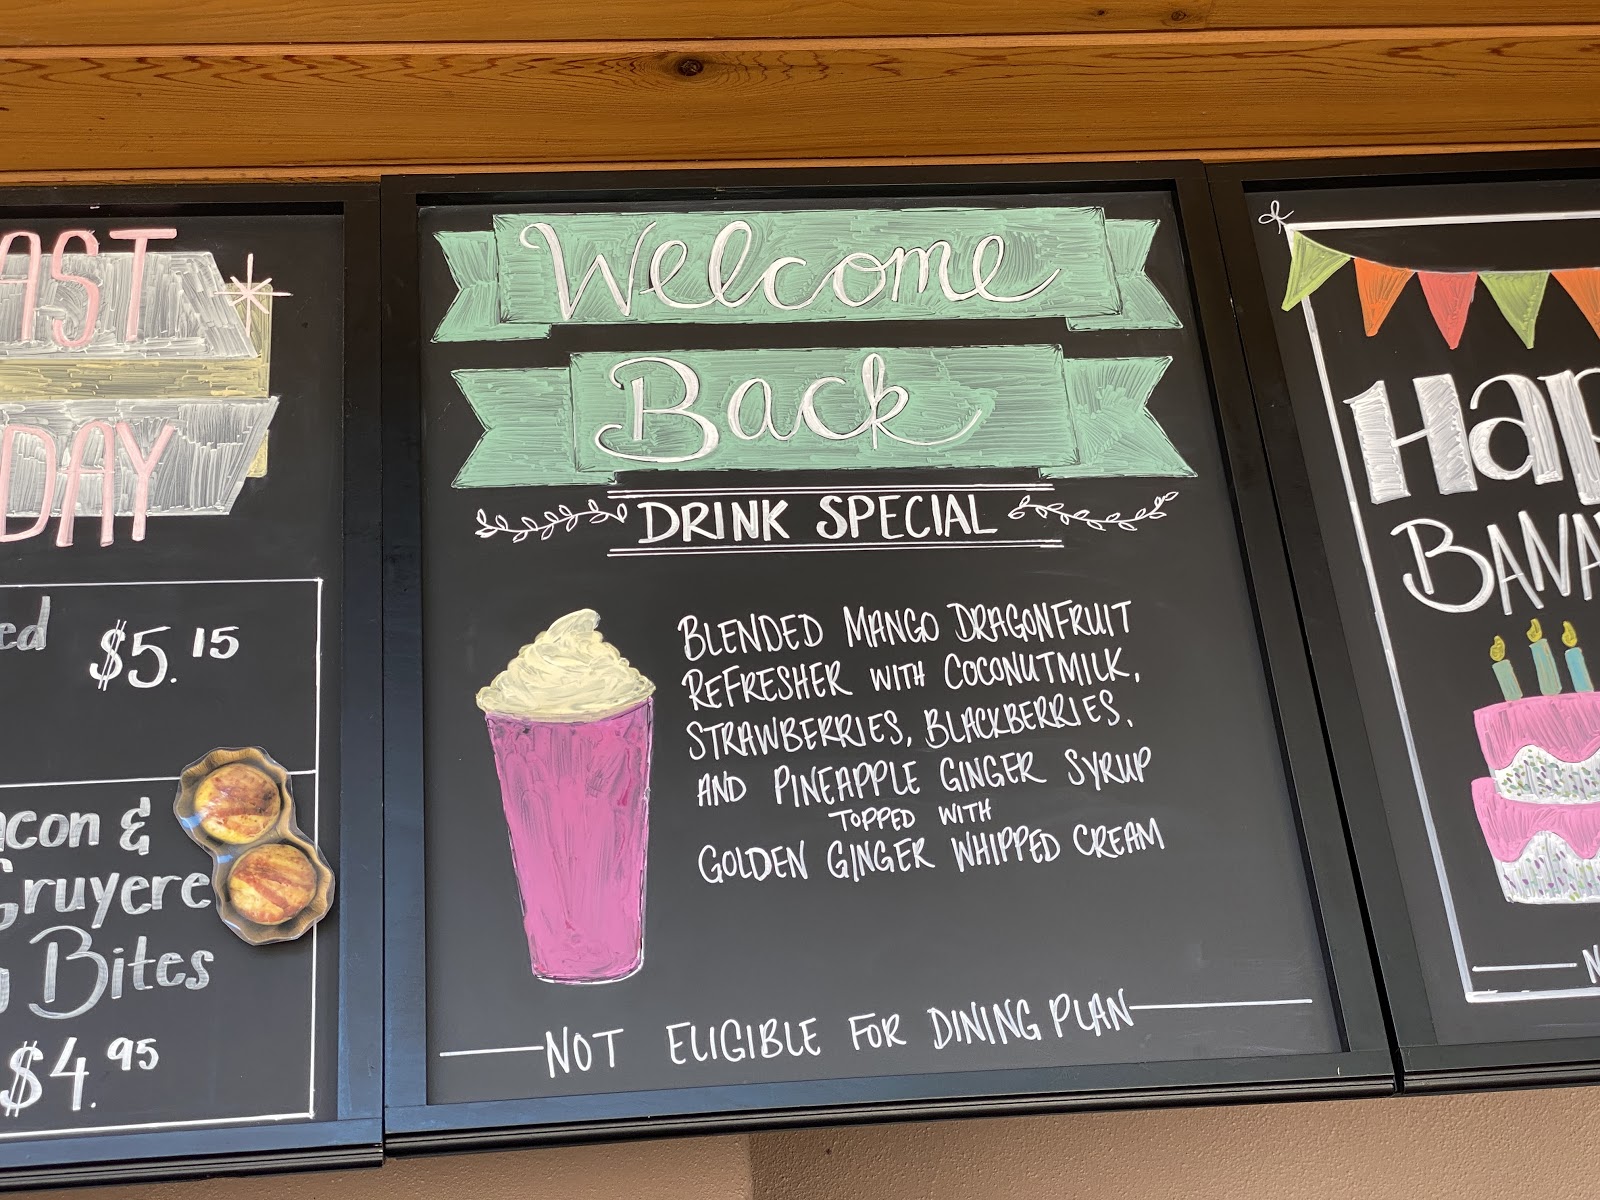 DAY
$5.15
&
Bites
$4.95
Welcome
Back
DRINK SPECIAL
BLENDED MANGO DRAGONFRUIT
REFRESHER WITH COCONUTMILK,
STRAWBERRIES, BLACKBERRIES,
AND PINEAPPLE GINGER SYRUP
TOPPED WITH
GOLDEN GINGER WHIPPED CREAM
NOT ELIGIBLE FOR DINING PLAN